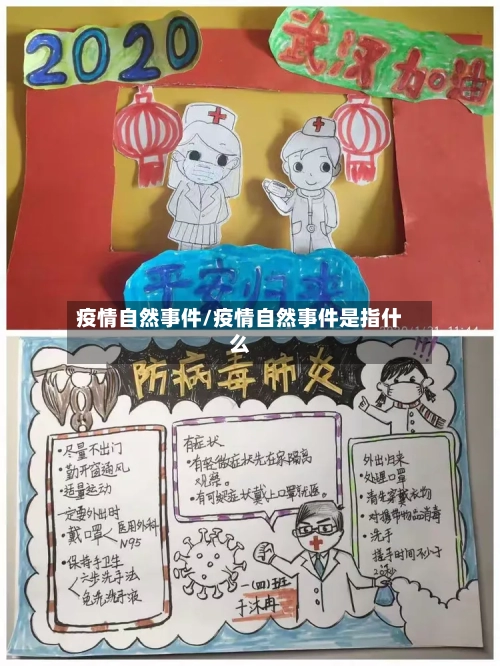 2020
武汉加油
平安归来
疫情自然事件/疫情自然事件是指什
么
防病毒肺炎
•尽量不出门
•勤开窗通风
•适量运动
一定要外出时
•戴口罩<医用外科
N95
•保持手卫生
<六步洗手法
免洗洗手液
有症状
•有轻微症状先在家隔离
观察。
•有可疑症状戴上口罩就医。
一(四)班
外出归来
•处理口罩
•清洗穿戴衣物
•对携带物品消毒
•洗手
搓手时间不少于
20秒